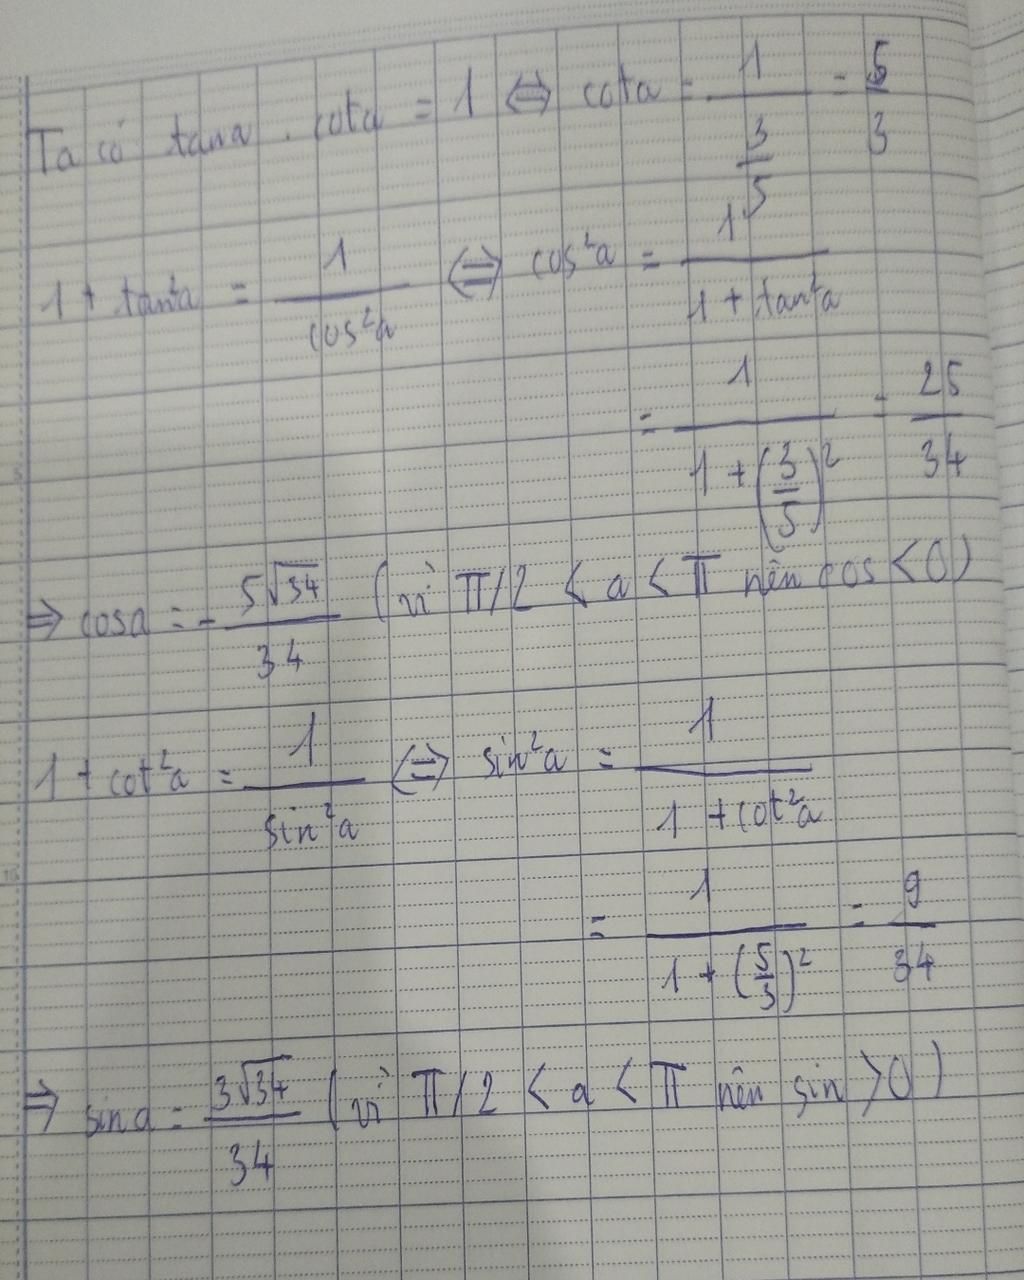 Ta có tana . cota = 1 ⇔ cota = 1/(3/5) = 5/3
1 + tan²a = 1/cos²a ⇔ cos²a = 1/(1 + tan²a)
= 1/(1 + (3/5)²) = 25/34
⇒ cosa = - 5√34/34 (vì π/2 < a < π nên cos < 0)
1 + cot²a = 1/sin²a ⇔ sin²a = 1/(1 + cot²a)
= 1/(1 + (5/3)²) = 9/34
⇒ sina = 3√34/34 (vì π/2 < a < π nên sin > 0)